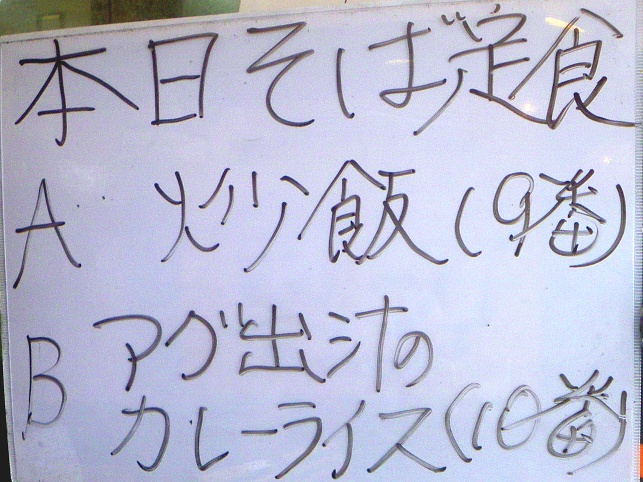 本日そば定食
A 炒飯(9番)
B アグー出汁の
カレーライス(10番)